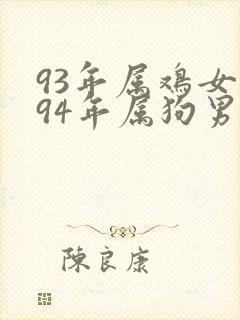 93年属鸡女
94年属狗男
陳良康